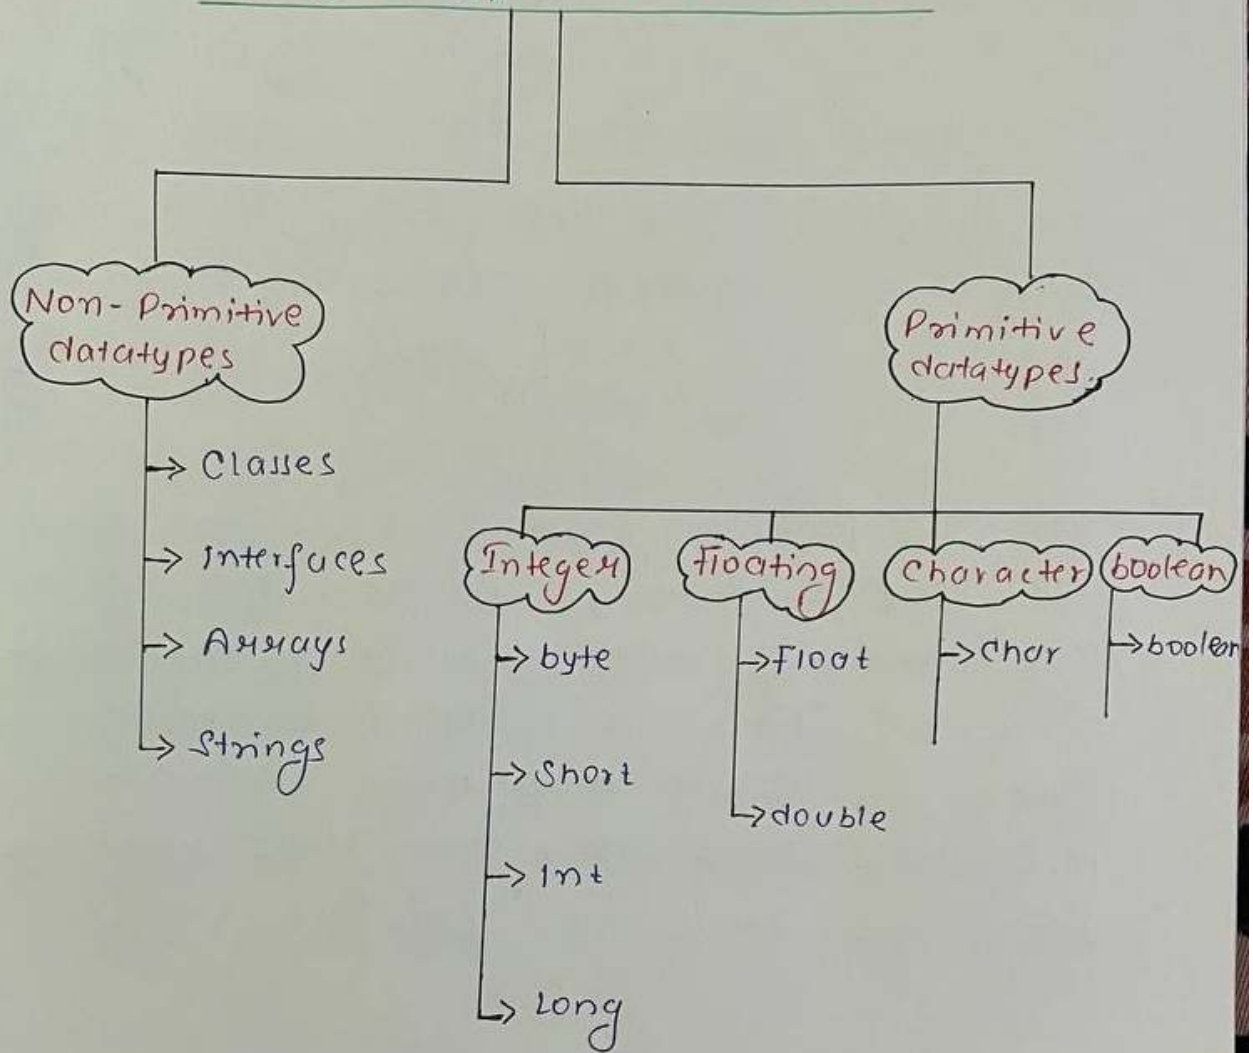 Non-Primitive
datatypes
Classes
Interfaces
Arrays
Strings
Primitive
datatypes.
Integer
byte
Short
Int
Long
Floating
Float
double
Character
Char
boolean
boolean